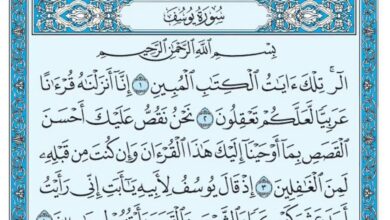 سُورَةُ يُوسُفَ
بِسْمِ اللَّهِ الرَّحْمَٰنِ الرَّحِيمِ
الٓر ۚ تِلْكَ ءَايَٰتُ ٱلْكِتَٰبِ ٱلْمُبِينِ ١ إِنَّآ أَنزَلْنَٰهُ قُرْءَٰنًا
عَرَبِيًّا لَّعَلَّكُمْ تَعْقِلُونَ ٢ نَحْنُ نَقُصُّ عَلَيْكَ أَحْسَنَ
ٱلْقَصَصِ بِمَآ أَوْحَيْنَآ إِلَيْكَ هَٰذَا ٱلْقُرْءَانَ وَإِن كُنتَ مِن قَبْلِهِۦ
لَمِنَ ٱلْغَٰفِلِينَ ٣ إِذْ قَالَ يُوسُفُ لِأَبِيهِ يَٰٓأَبَتِ إِنِّى رَأَيْتُ